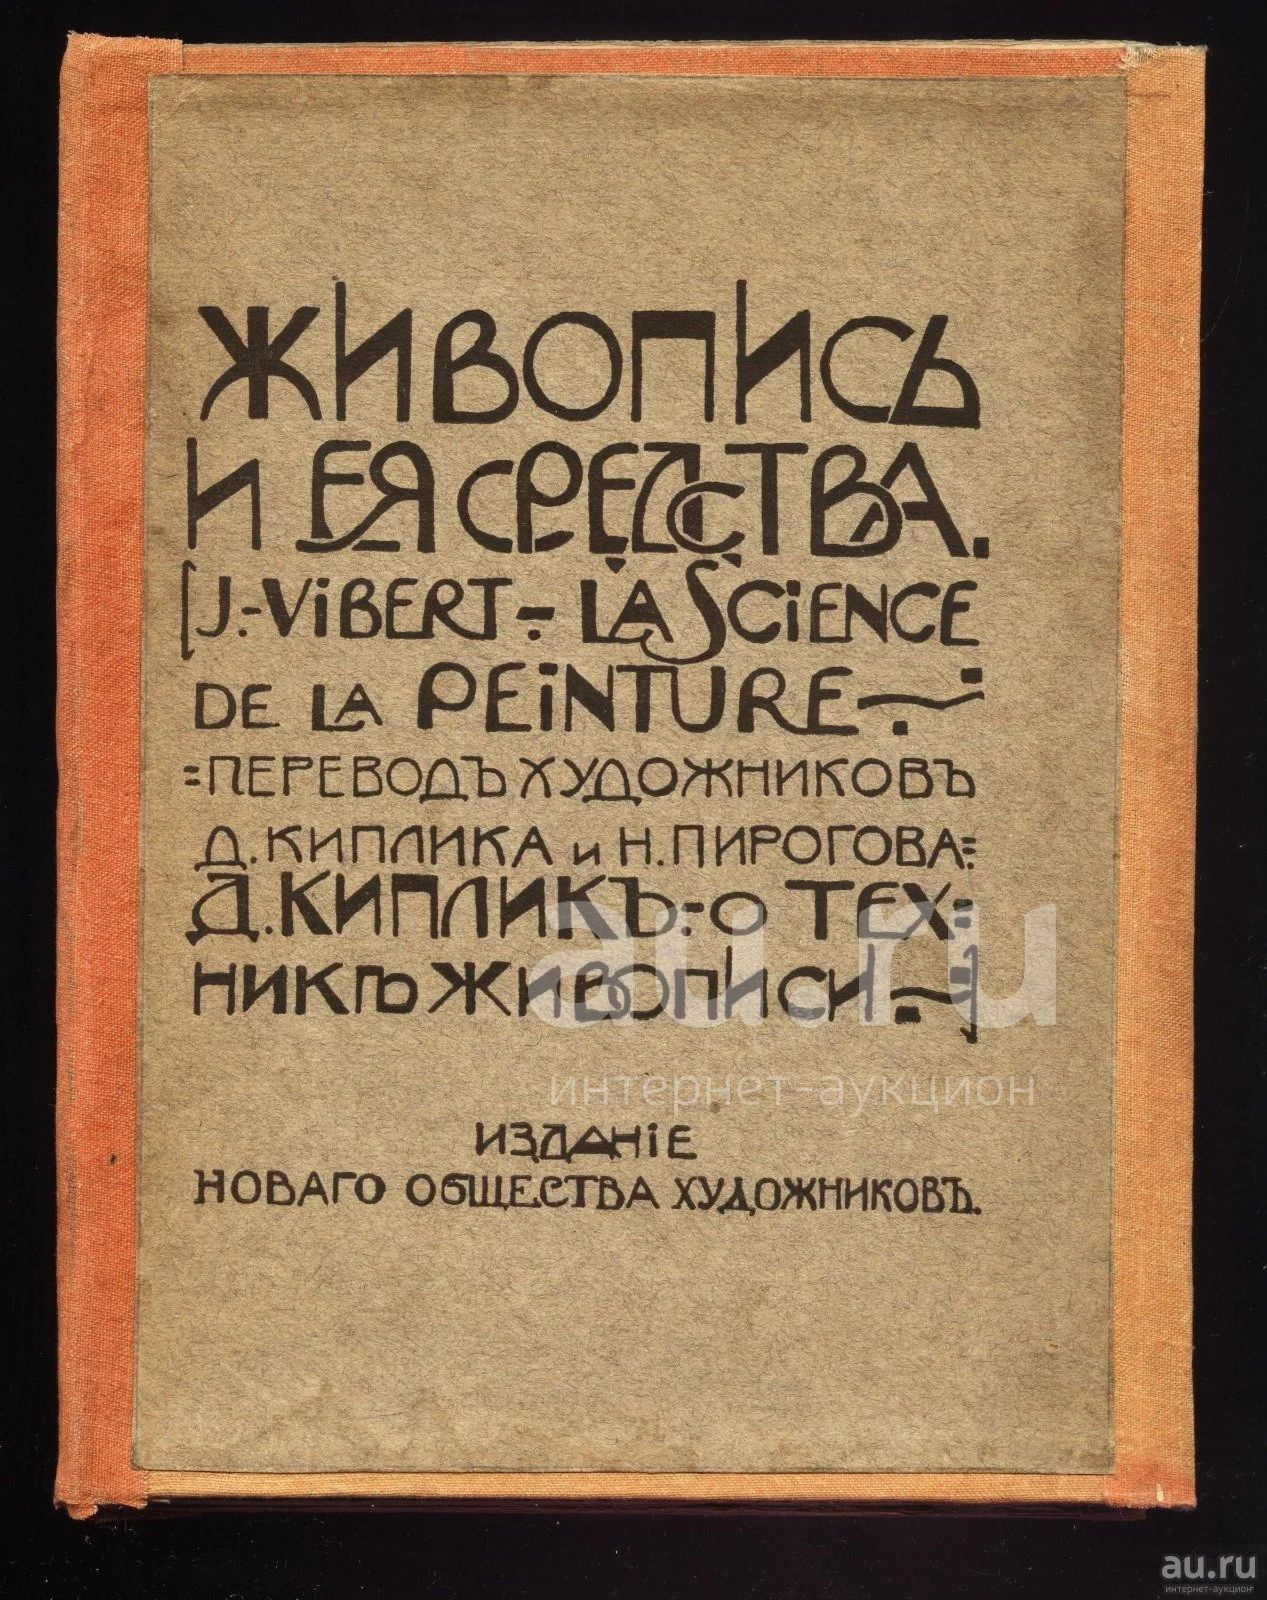 ЖИВОПИСЬ
И ЕЯ СРЕДСТВА.
[J.-ViBERT-: LA SCiENCE
DE LA PEiNTURE
=ПЕРЕВОДЪ ХУДОЖНИКОВЪ
Д. КИПЛИКА и Н. ПИРОГОВА=
Д. КИПЛИКЪ=О ТЕХ=
НИКѢ ЖИВОПИСИ]
ИЗДАНіЕ
НОВАГО ОБЩЕСТВА ХУДОЖНИКОВЪ.
au.ru
интернет-аукцион
au.ru
интернет-аукцион